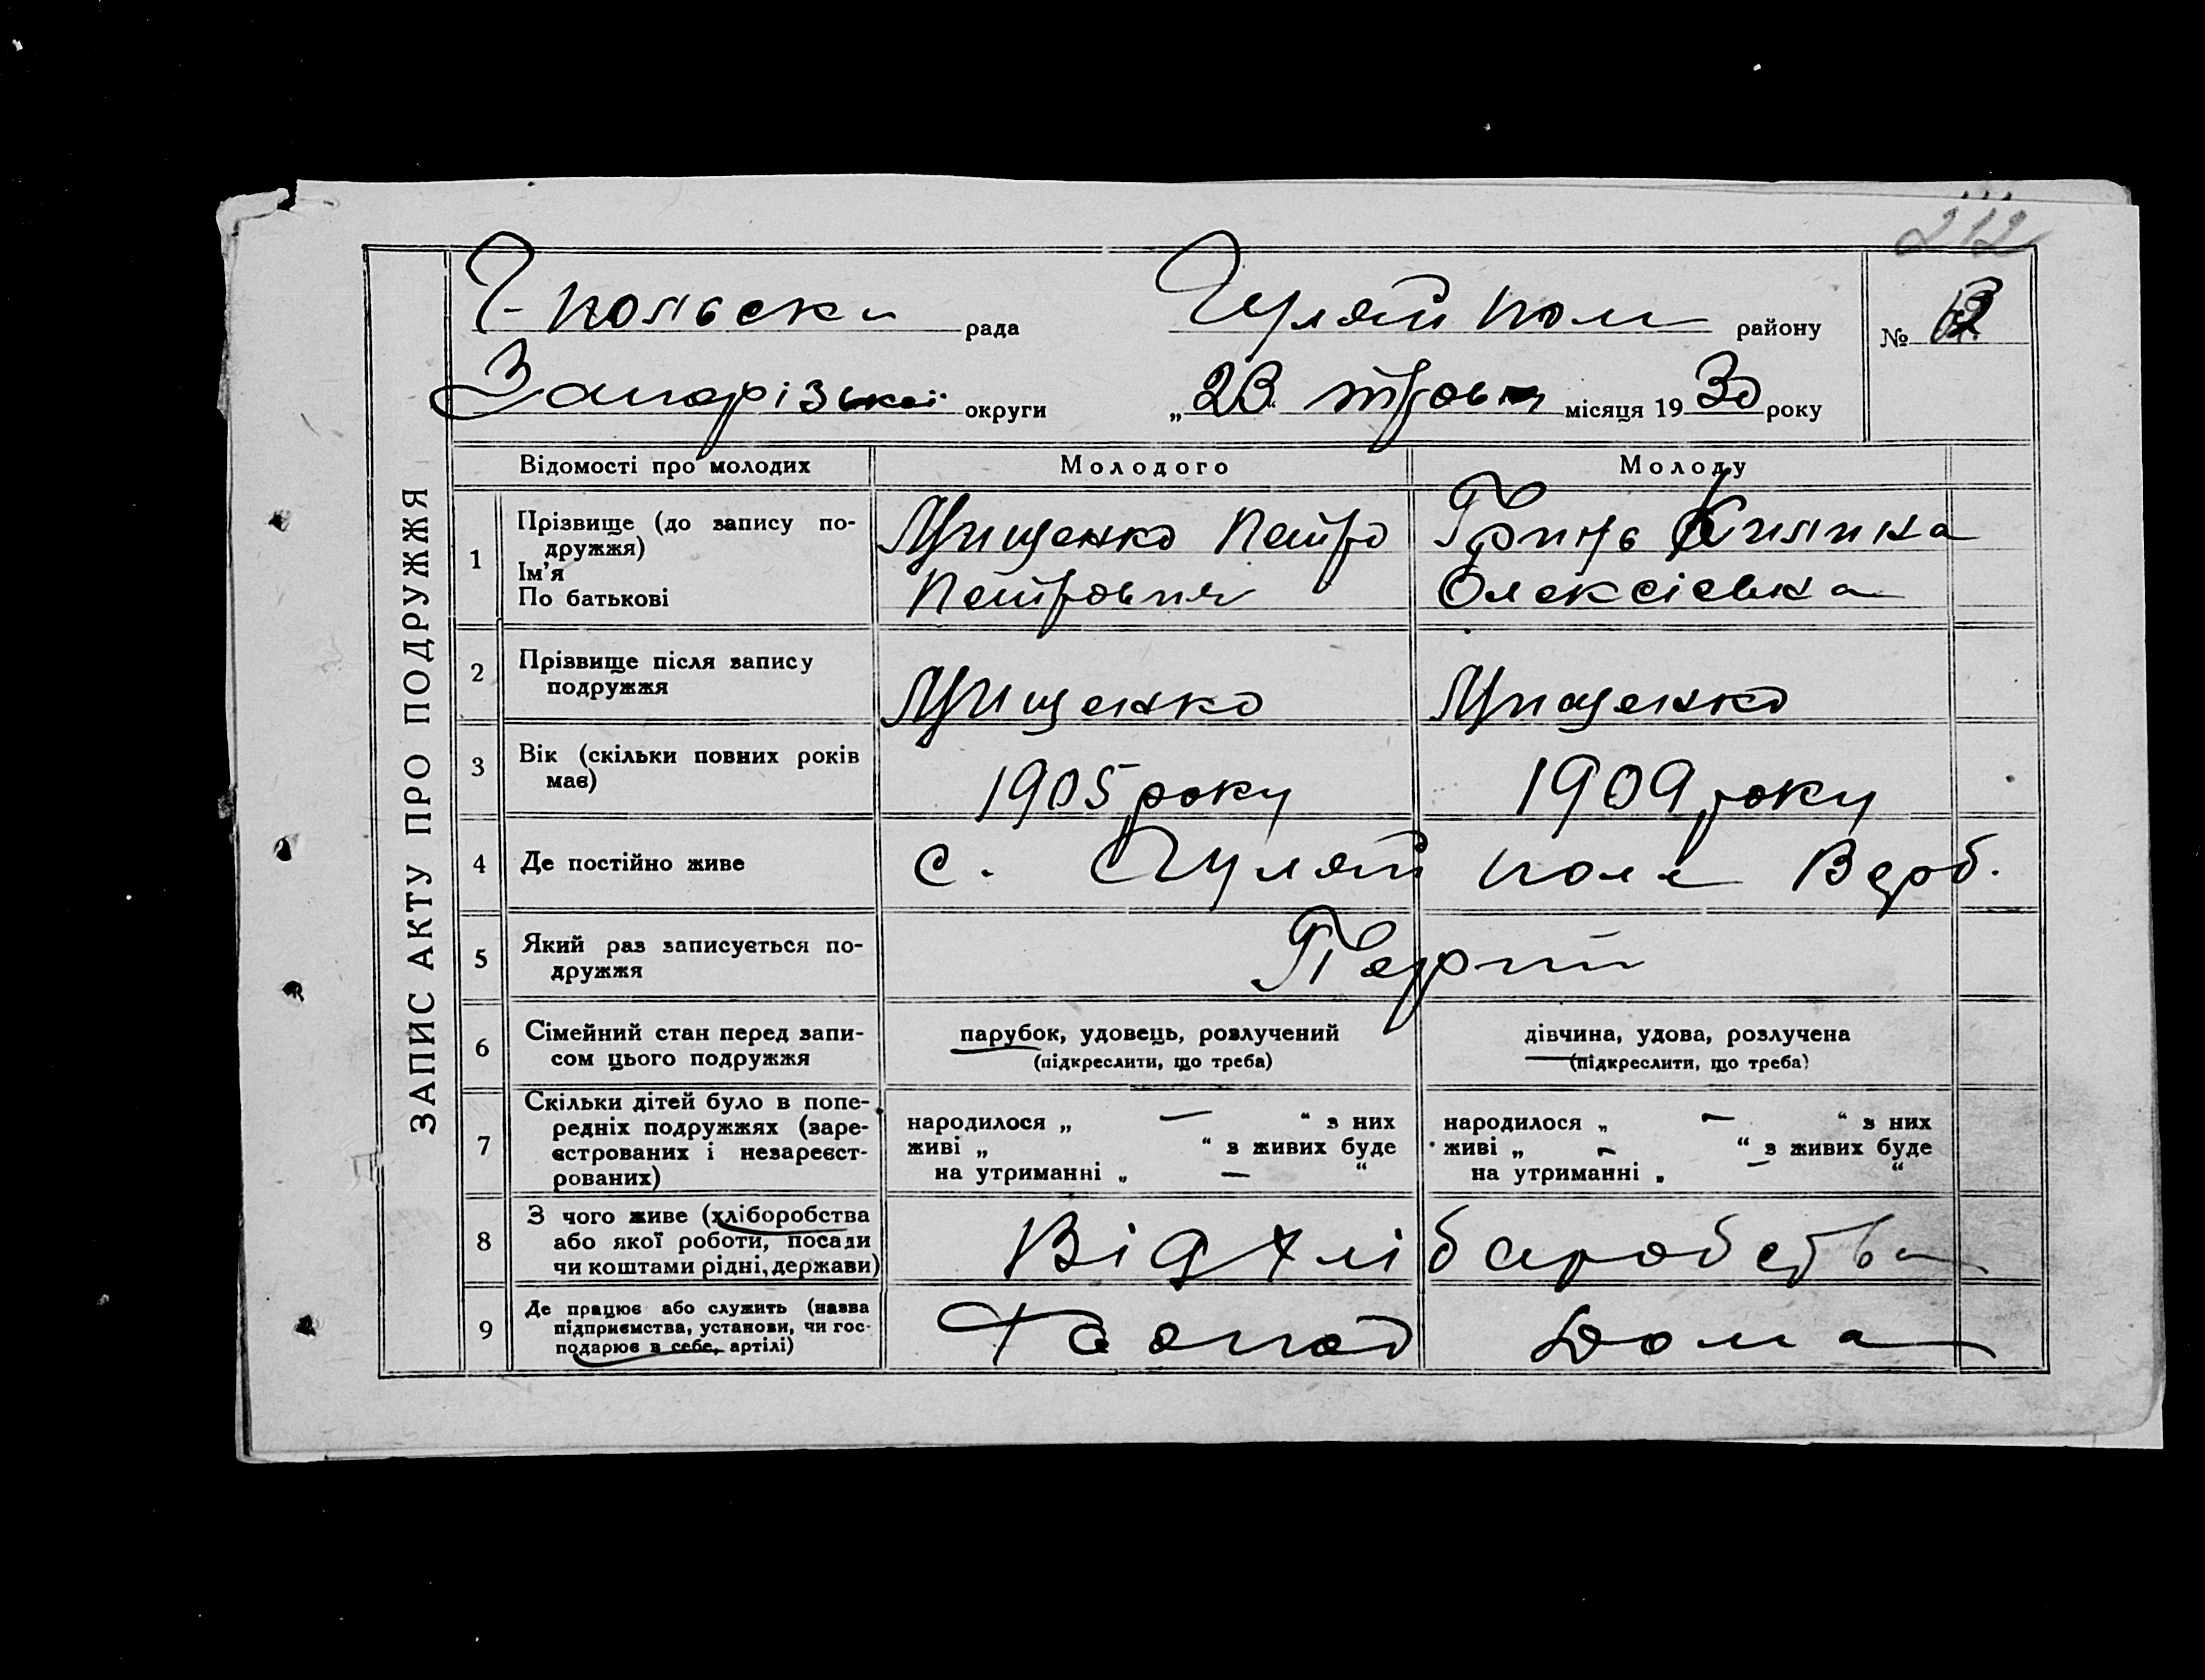 212
Г-польска рада Гуляй поле району № 
Запорізької округи „23“ травня місяця 1930 року
ЗАПИС АКТУ ПРО ПОДРУЖЖЯ
Відомості про молодих Молодого Молоду
1 Прізвище (до запису по-
дружжя)
Ім'я
По батькові
Грищенко Петро
Петрович
Гринь Килина
Олексієвна
2 Прізвище після запису
подружжя
Грищенко Грищенко
3 Вік (скільки повних років
має)
1905 року 1909 року
4 Де постійно живе с. Гуляй поле Верб.
5 Який раз записується по-
дружжя
Перший
6 Сімейний стан перед запи-
сом цього подружжя
парубок, удовець, розлучений
(підкреслити, що треба)
дівчина, удова, розлучена
(підкреслити, що треба)
7 Скільки дітей було в попе-
редніх подружжях (заре-
єстрованих і незареєст-
рованих)
народилося „ — “ з них
живі „ “ з живих буде
на утриманні „ — “
народилося „ — “ з них
живі „ - “ з живих буде
на утриманні „ — “
8 З чого живе (хліборобства
або якої роботи, посади
чи коштами рідні, держави)
Від хліборобства
9 Де працює або служить (назва
підприємства, установи, чи гос-
подарює в себе, артілі)
Дома